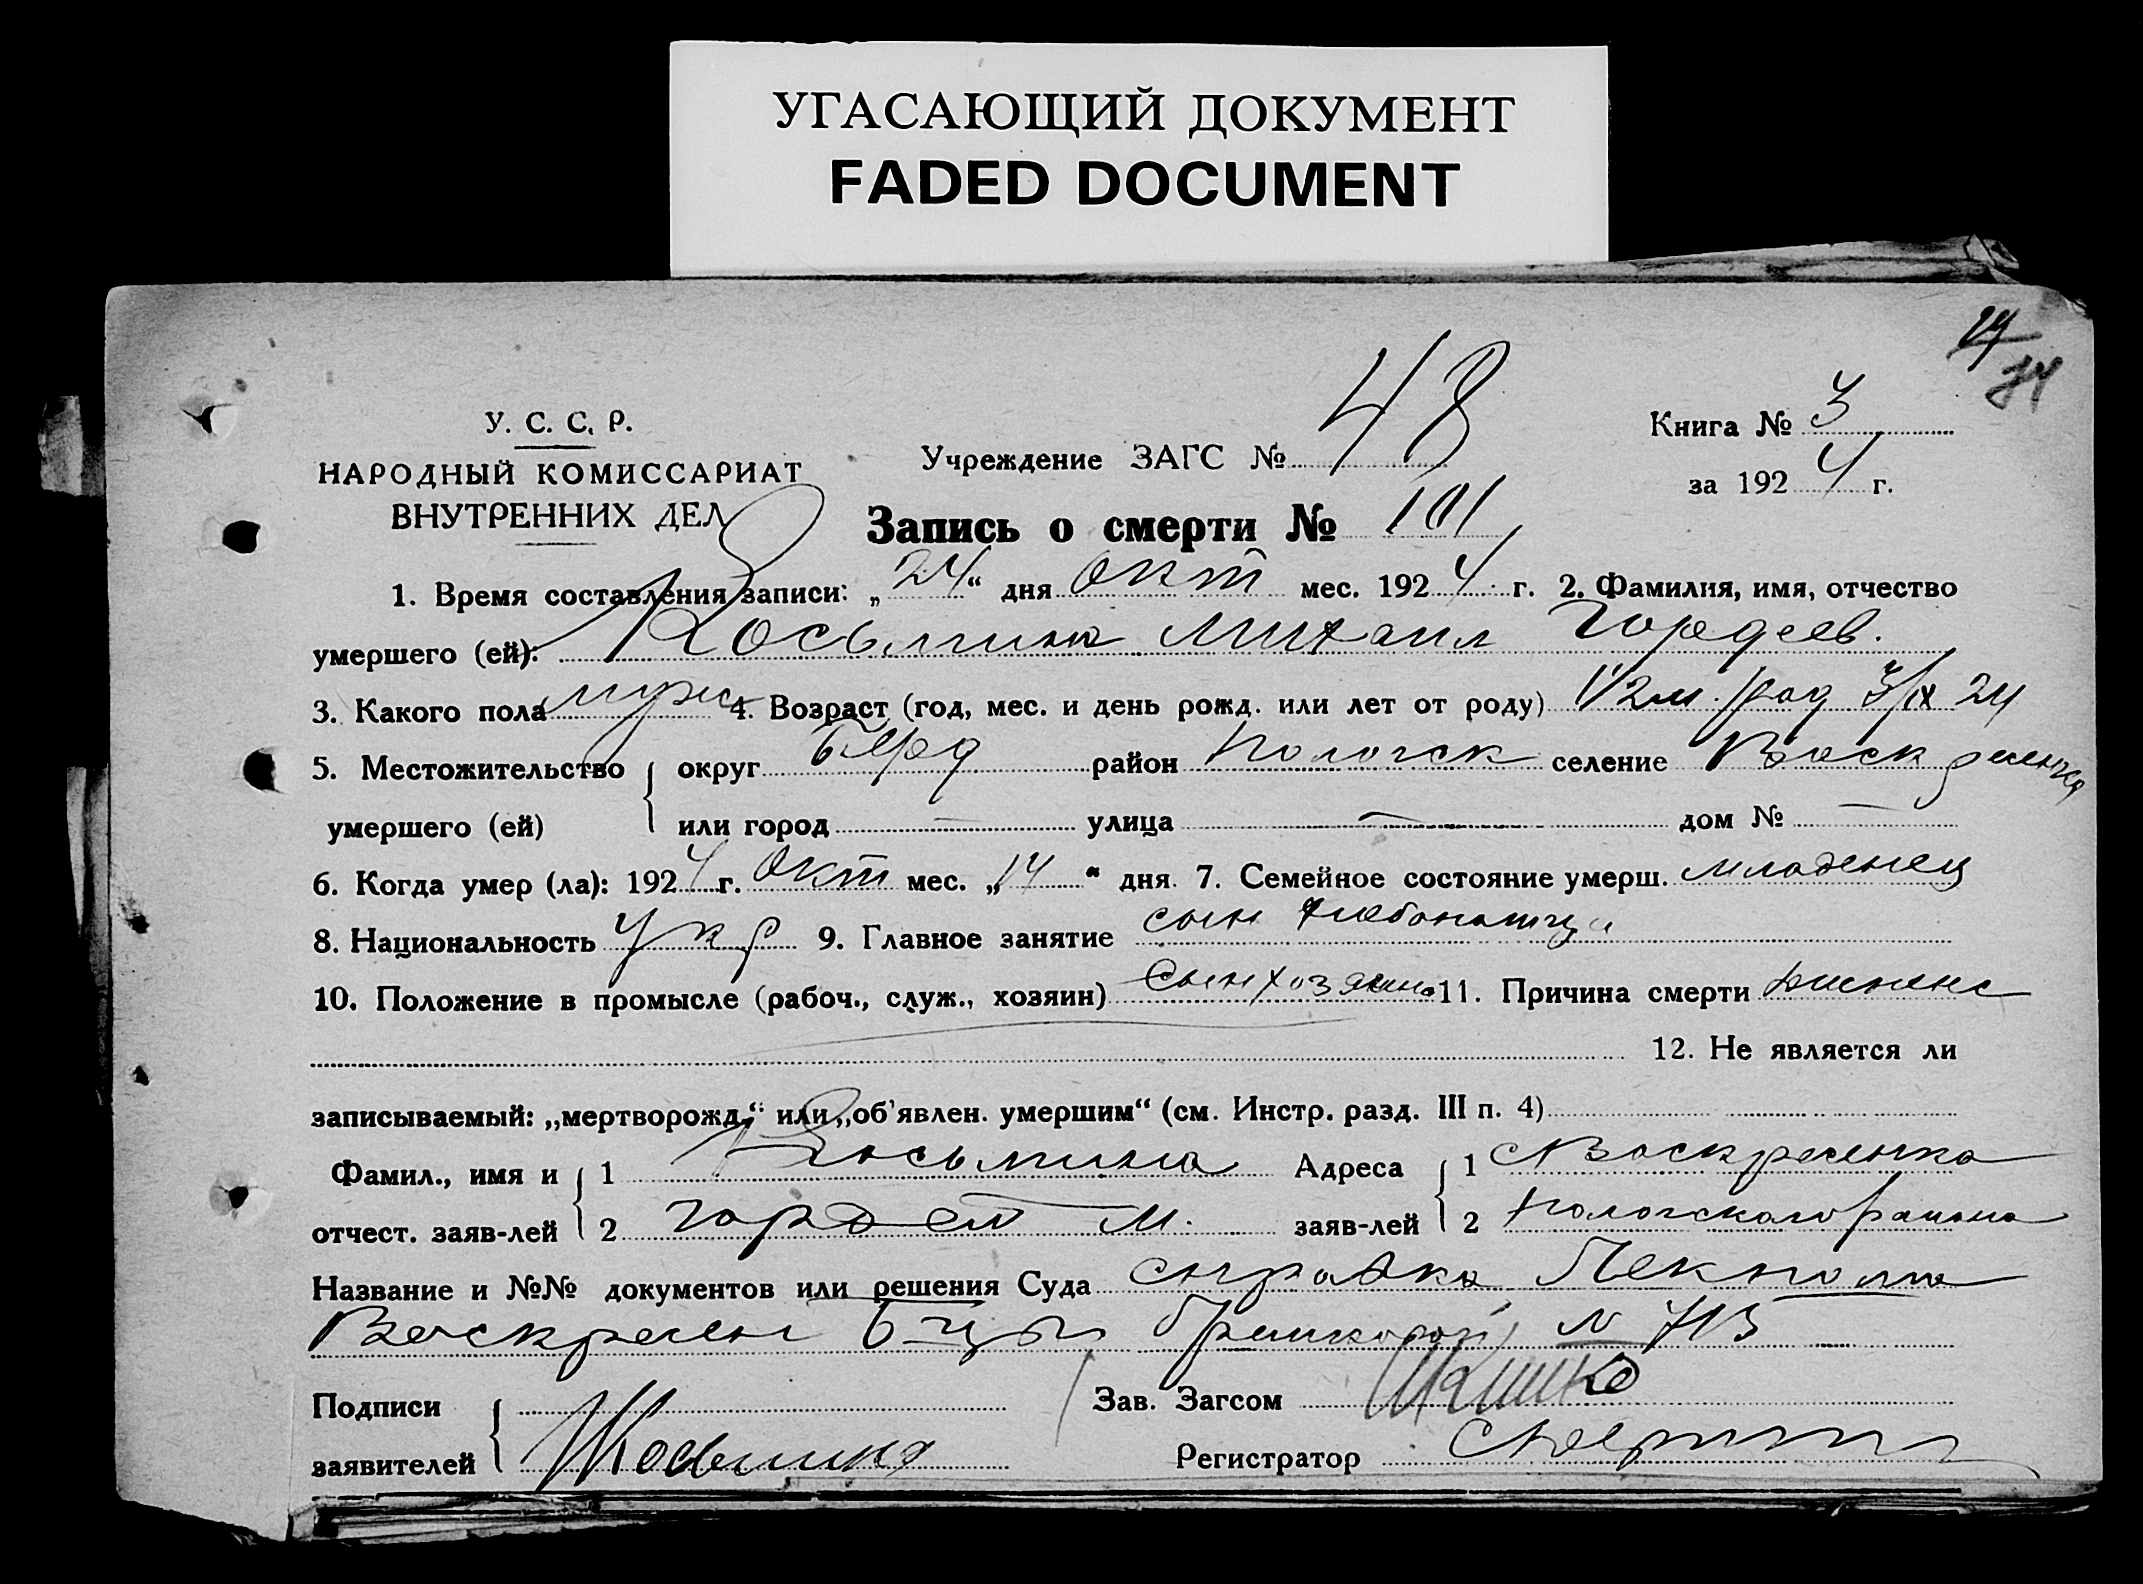 УГАСАЮЩИЙ ДОКУМЕНТ
FADED DOCUMENT
У. С. С. Р.
НАРОДНЫЙ КОМИССАРИАТ
ВНУТРЕННИХ ДЕЛ
Учреждение ЗАГС № 48
Книга № 3
за 1924 г.
Запись о смерти № 101
1. Время составления записи: „24“ дня окт мес. 1924 г. 2. Фамилия, имя, отчество
умершего (ей): Косьмина Михаил Гордеев.
3. Какого пола муж 4. Возраст (год, мес. и день рожд. или лет от роду)
5. Местожительство округ Берд район Пологск селение Воскресенка
умершего (ей) или город — улица — дом № —
6. Когда умер (ла): 1924 г. окт мес. „14“ дня. 7. Семейное состояние умерш. младенец
8. Национальность укр 9. Главное занятие сын хлебопашца
10. Положение в промысле (рабоч., служ., хозяин) сын хозяина 11. Причина смерти
12. Не является ли
записываемый: „мертворожд.“ или „об’явлен. умершим“ (см. Инстр. разд. III п. 4)
Фамил., имя и 1 Косьмина Адреса 1 с Воскресенка
отчест. заяв-лей 2 Гордей М. заяв-лей 2 Пологского района
Название и №№ документов или решения Суда справка
№ 713
Подписи Зав. Загсом
заявителей Косьмина Регистратор